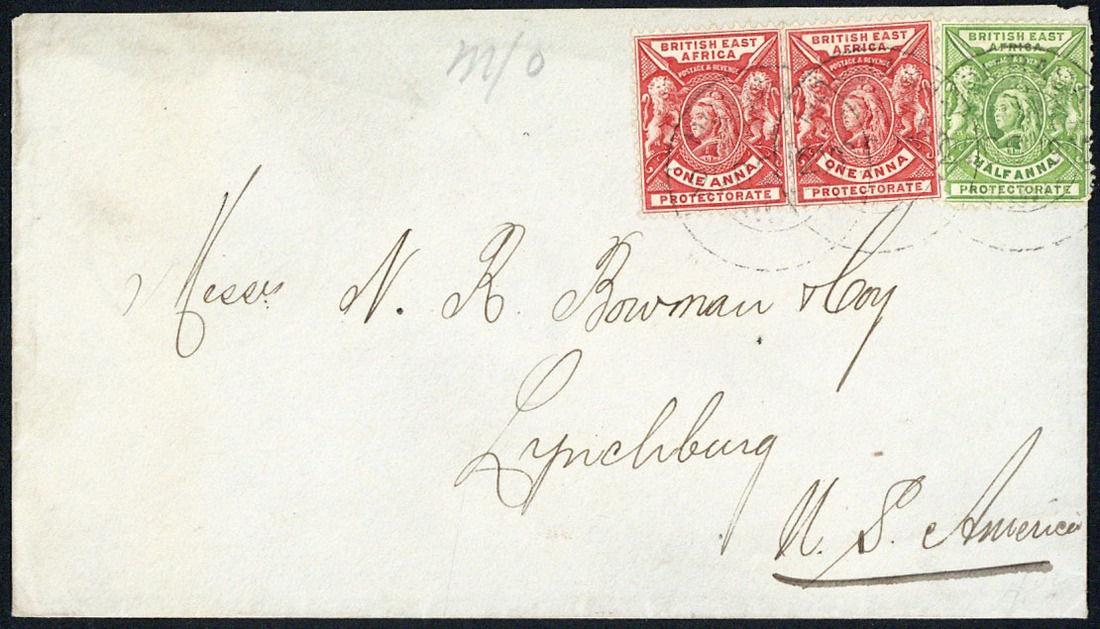 m/o
BRITISH EAST
AFRICA
POSTAGE & REVENUE
ONE ANNA
PROTECTORATE
BRITISH EAST
AFRICA
POSTAGE & REVENUE
ONE ANNA
PROTECTORATE
BRITISH EAST
AFRICA
POSTAGE & REVENUE
HALF ANNA
PROTECTORATE
Messrs N. R. Bowman & Coy
Lynchburg
U. S. America